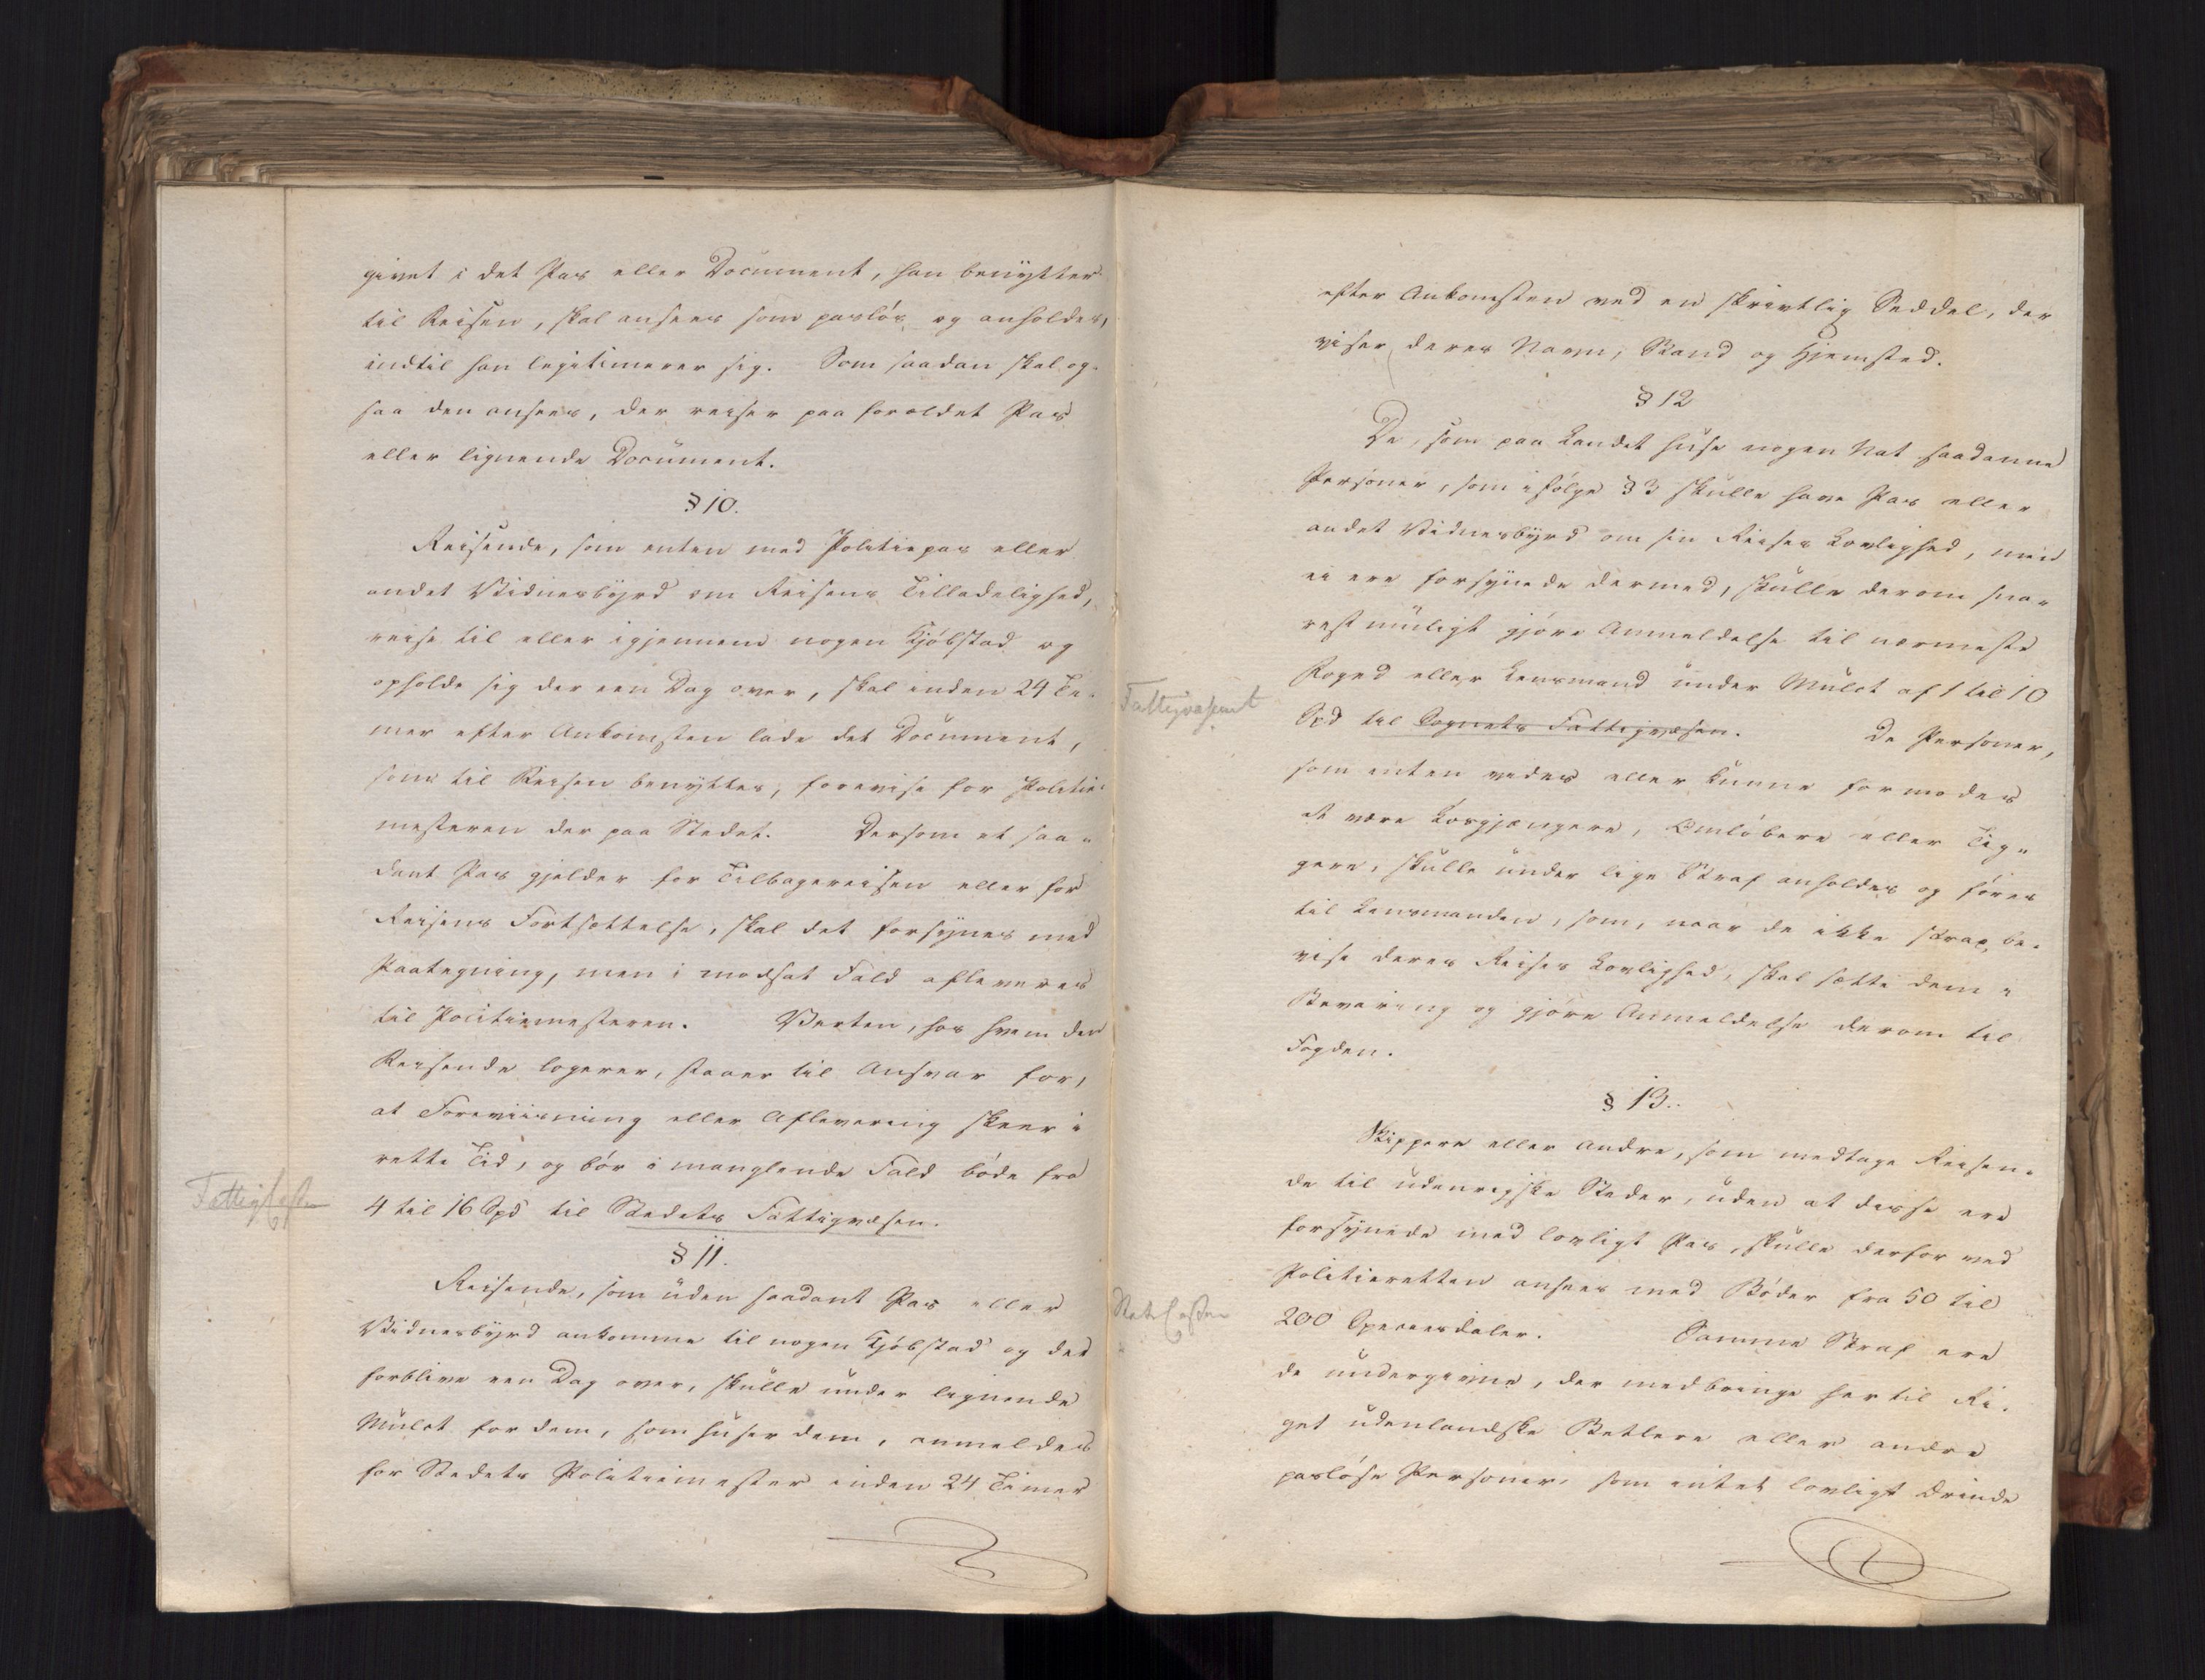 givet i det Pas eller Document, han benytter
til Reisen, skal ansees som paslós og anholdes,
indtil han legitimerer sig. Som saadan skal og-
saa den ansees, der reiser paa forældet Pas
eller lignende Document.
§ 10.
Reisende, som enten med Politiepas eller
andet Vidnesbyrd om Reisens Tilladelighed,
reise til eller igjennem nogen Kjóbstad og
opholde sig der een Dag over, skal inden 24 Ti-
mer efter Ankomsten lade det Document,
som til Reisen benyttes, forevise for Politie-
mesteren der paa Stedet. Dersom et saa-
dant Pas gjelder for Tilbagereisen eller for
Reisens Fortsættelse, skal det forsynes med
Paategning, men i modsat Fald afleveres
til Politiemesteren. Verten, hos hvem den
Reisende logerer, staaer til Ansvar for,
at Foreviisning eller Aflevering skeer i
rette Tid, og bór i manglende Fald bóde fra
Fattigkassen
4 til 16 Spd til Stedets Fattigvæsen.
§ 11.
Reisende, som uden saadant Pas eller
Vidnesbyrd ankomme til nogen Kjóbstad og der
forblive een Dag over, skulle under lignende
Mulct for dem, som huser dem, anmeldes
for Stedets Politiemester inden 24 Timer
efter Ankomsten ved en skrivtlig Seddel, der
viser deres Navn, Stand og Hjemsted.
§ 12
De, som paa Landet huse nogen Nat saadanne
Personer, som ifólge § 3 skulle have Pas eller
andet Vidnesbyrd om sin Reises Lovlighed, men
ei ere forsynede dermed, skulle derom sna-
rest muligt gjóre Anmeldelse til nærmeste
Foged eller Lensmand under Mulct af 1 til 10
Fattigvæsenet
Spd til Sognets Fattigvæsen. De Personer,
som enten vides eller kunne formodes
at være Losgjængere, Omlóbere eller Tig-
gere, skulle under lige Straf anholdes og fóres
til Lensmanden, som, naar de ikke strax be-
vise deres Reises Lovlighed, skal sætte dem i
Bevaring og gjóre Anmeldelse derom til
Fogden.
§ 13.
Skippere eller Andre, som medtage Reisen-
de til udenrigske Steder, uden at disse ere
forsynede med lovligt Pas, skulle derfor ved
Politieretten ansees med Bóder fra 50 til
Statskassen
200 Speciesdaler. Samme Straf ere
de undergivne, der medbringe her til Ri-
get udenlandske Betlere eller andre
paslóse Personer, som intet lovligt Ærinde